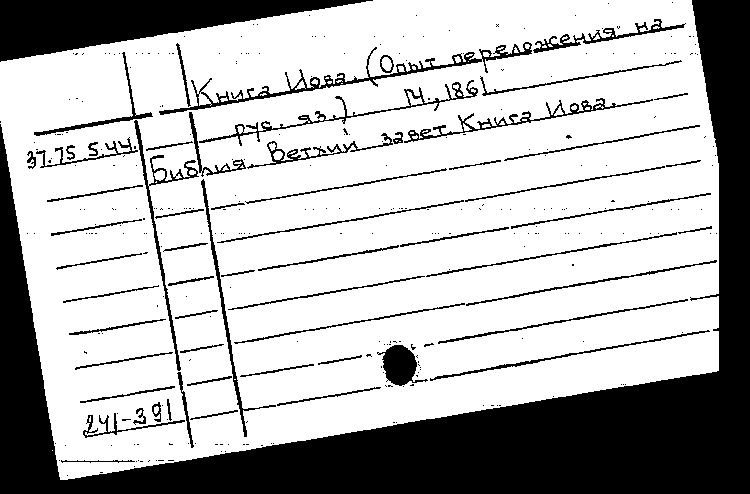 Книга Иова. (Опыт переложения на
рус. яз.). М., 1861.
37.75 5.44.
Библия. Ветхий завет. Книга Иова.
241-391